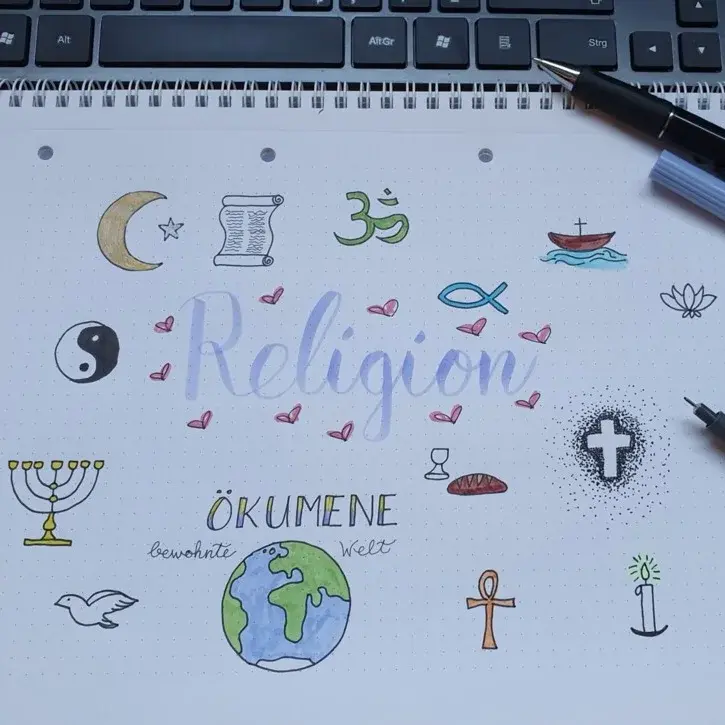 Alt
Alt Gr
Strg
Religion
ÖKUMENE
bewohnte Welt